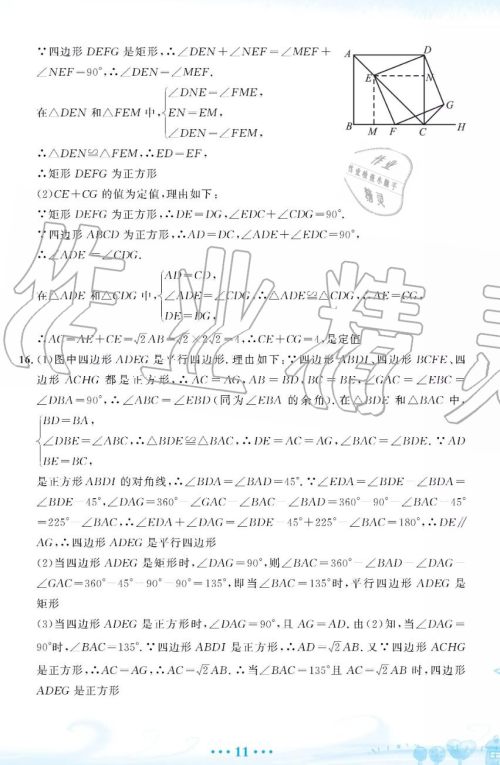 ∵四边形 DEFG 是矩形,∴∠DEN+∠NEF=∠MEF+
∠NEF=90°,∴∠DEN=∠MEF.
∠DNE=∠FME,
在△DEN 和△FEM 中, EN=EM,
∠DEN=∠FEM,
∴△DEN≌△FEM,∴ED=EF,
∴矩形 DEFG 为正方形
(2)CE+CG 的值为定值,理由如下:
∵矩形 DEFG 为正方形,∴DE=DG,∠EDC+∠CDG=90°.
∵四边形 ABCD 为正方形,∴AD=DC,∠ADE+∠EDC=90°,
∴∠ADE=∠CDG.
AD=CD,
在△ADE 和△CDG 中, ∠ADE=∠CDG,∴△ADE≌△CDG,∴AE=CG,
DE=DG,
∴AC=AE+CE=√2AB=√2×2√2=4,∴CE+CG=4,是定值
16. (1)图中四边形 ADEG 是平行四边形.理由如下:∵四边形 ABDI、四边形 BCFE、四
边形 ACHG 都是正方形,∴AC=AG,AB=BD,BC=BE,∠GAC=∠EBC=
∠DBA=90°,∴∠ABC=∠EBD(同为∠EBA 的余角).在△BDE 和△BAC 中,
BD=BA,
∠DBE=∠ABC,∴△BDE≌△BAC,∴DE=AC=AG,∠BAC=∠BDE.∵AD
BE=BC,
是正方形 ABDI 的对角线,∴∠BDA=∠BAD=45°.∵∠EDA=∠BDE-∠BDA=
∠BDE-45°,∠DAG=360°-∠GAC-∠BAC-∠BAD=360°-90°-∠BAC-45°
=225°-∠BAC,∴∠EDA+∠DAG=∠BDE-45°+225°-∠BAC=180°,∴DE∥
AG,∴四边形 ADEG 是平行四边形
(2)当四边形 ADEG 是矩形时,∠DAG=90°,则∠BAC=360°-∠BAD-∠DAG-
∠GAC=360°-45°-90°-90°=135°,即当∠BAC=135°时,平行四边形 ADEG 是
矩形
(3)当四边形 ADEG 是正方形时,∠DAG=90°,且 AG=AD.由(2)知,当∠DAG=
90°时,∠BAC=135°.∵四边形 ABDI 是正方形,∴AD=√2AB.又∵四边形 ACHG
是正方形,∴AC=AG,∴AC=√2AB.∴当∠BAC=135°且 AC=√2AB 时,四边形
ADEG 是正方形
A
D
E
N
G
B
M
F
C
H
作业
作业检查小助手
精灵
作业精灵
11